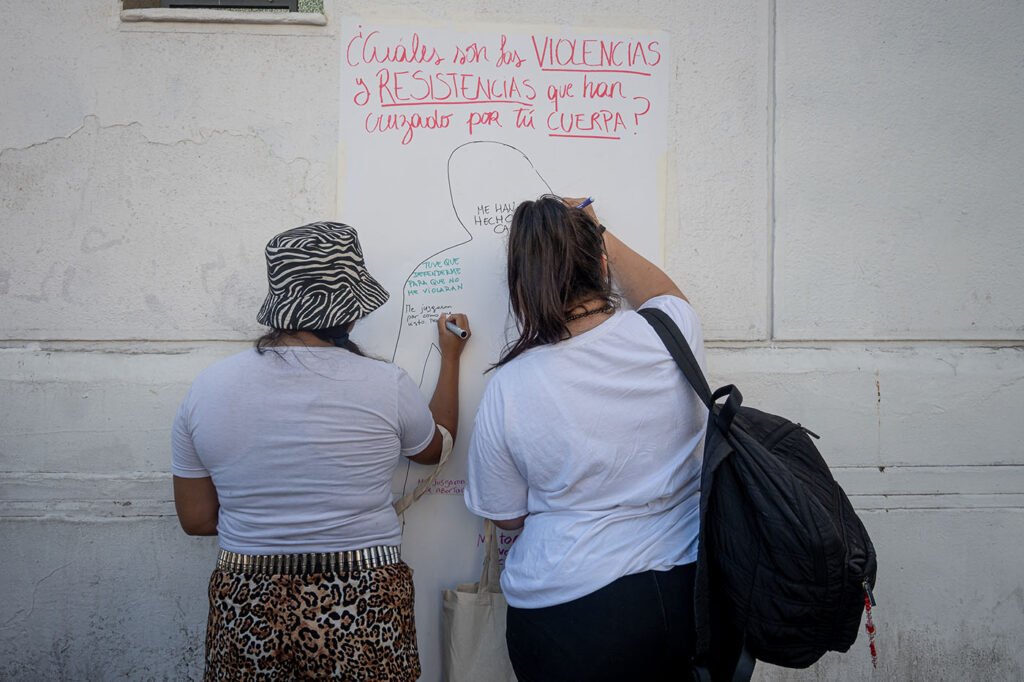 ¿Cuáles son las VIOLENCIAS
y RESISTENCIAS que han
cruzado por tú CUERPA?
ME HAN
HECHO
CA
TUVE QUE
DEFENDERME
PARA QUE NO
ME VIOLARAN
Me juzgaron
por como
visto
Me juzgaron
abortar